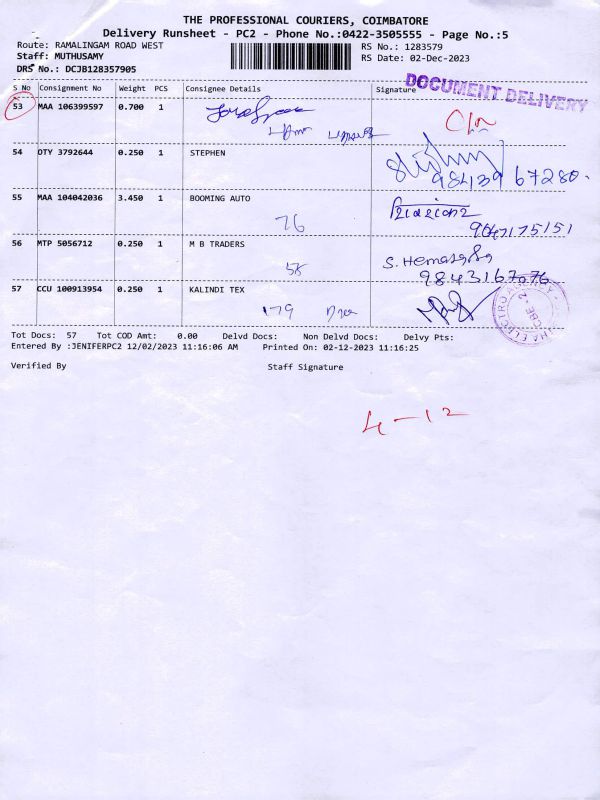 THE PROFESSIONAL COURIERS, COIMBATORE
Delivery Runsheet - PC2 - Phone No.:0422-3505555 - Page No.:5
Route: RAMALINGAM ROAD WEST
RS No.: 1283579
Staff: MUTHUSAMY
RS Date: 02-Dec-2023
DRS No.: DCJB128357905
S No Consignment No Weight PCS Consignee Details Signature
DOCUMENT DELIVERY
53 MAA 106399597 0.700 1
54 OTY 3792644 0.250 1 STEPHEN
98439 67280.
55 MAA 104042036 3.450 1 BOOMING AUTO
76 9047175151
56 MTP 5056712 0.250 1 M B TRADERS
58 S. Hemasala
9843167076
57 CCU 100913954 0.250 1 KALINDI TEX
179
Tot Docs: 57 Tot COD Amt: 0.00 Delvd Docs: Non Delvd Docs: Delvy Pts:
Entered By :JENIFERPC2 12/02/2023 11:16:06 AM Printed On: 02-12-2023 11:16:25
Verified By Staff Signature
4-12